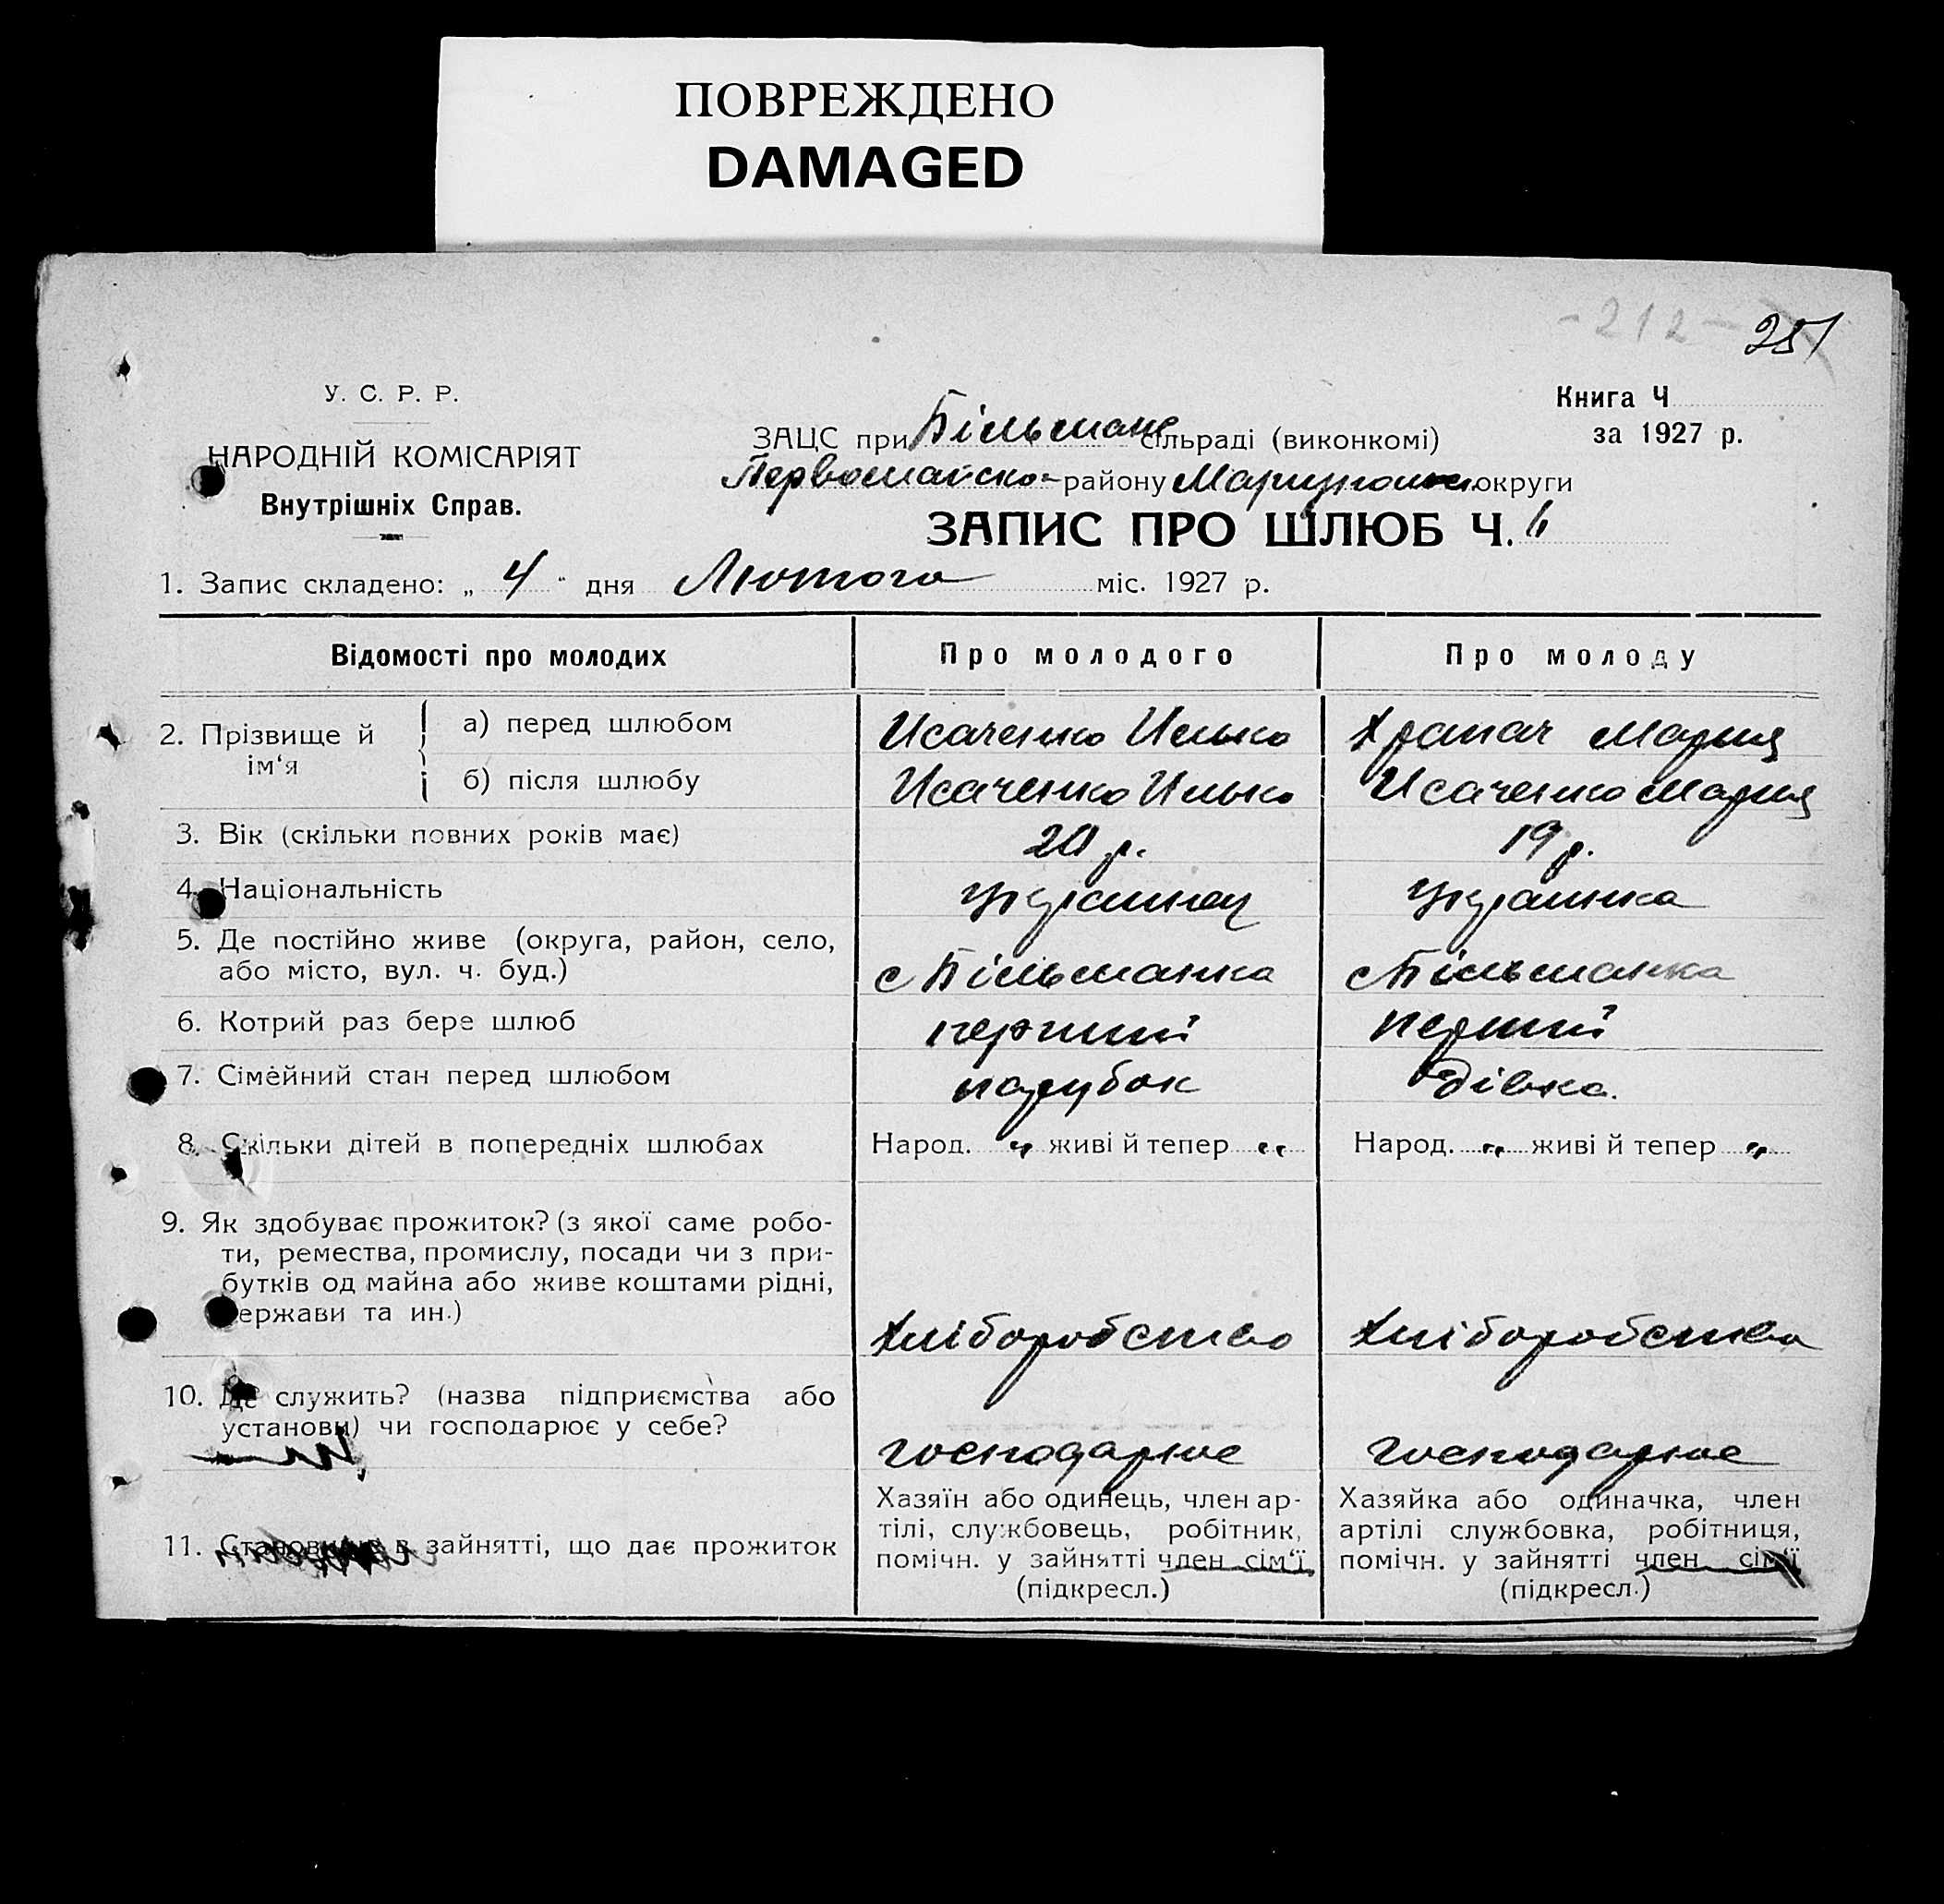 ПОВРЕЖДЕНО
DAMAGED
-212- 251
У. С. Р. Р.
НАРОДНІЙ КОМІСАРІЯТ
Внутрішніх Справ.
Книга Ч
за 1927 р.
ЗАЦС при Більманс сільраді (виконкомі)
Первомайско- району Мариупольс округи
ЗАПИС ПРО ШЛЮБ Ч. 6
1. Запис складено: „ 4 " дня Лютого міс. 1927 р.
Відомості про молодих Про молодого Про молоду
2. Прізвище й ім‘я
а) перед шлюбом Исаченко Илько Храпач Мария
б) після шлюбу Исаченко Илько Исаченко Мария
3. Вік (скільки повних років має) 20 р. 19 р.
4. Національність українец українка
5. Де постійно живе (округа, район, село,
або місто, вул. ч. буд.) с Більманка с Більманка
6. Котрий раз бере шлюб перший перший
7. Сімейний стан перед шлюбом парубок дівка.
8. Скільки дітей в попередніх шлюбах Народ. „ живі й тепер „ Народ. „ живі й тепер „
9. Як здобуває прожиток? (з якої саме робо-
ти, ремества, промислу, посади чи з при-
бутків од майна або живе коштами рідні,
держави та ин.) Хліборобство Хліборобство
10. Де служить? (назва підприємства або
установи) чи господарює у себе? господарює господарює
11. Становище в зайнятті, що дає прожиток
Хазяїн або одинець, член ар-
тілі, службовець, робітник,
помічн. у зайнятті член сім‘ї
(підкресл.)
Хазяйка або одиначка, член
артілі службовка, робітниця,
помічн. у зайнятті член сім‘ї
(підкресл.)